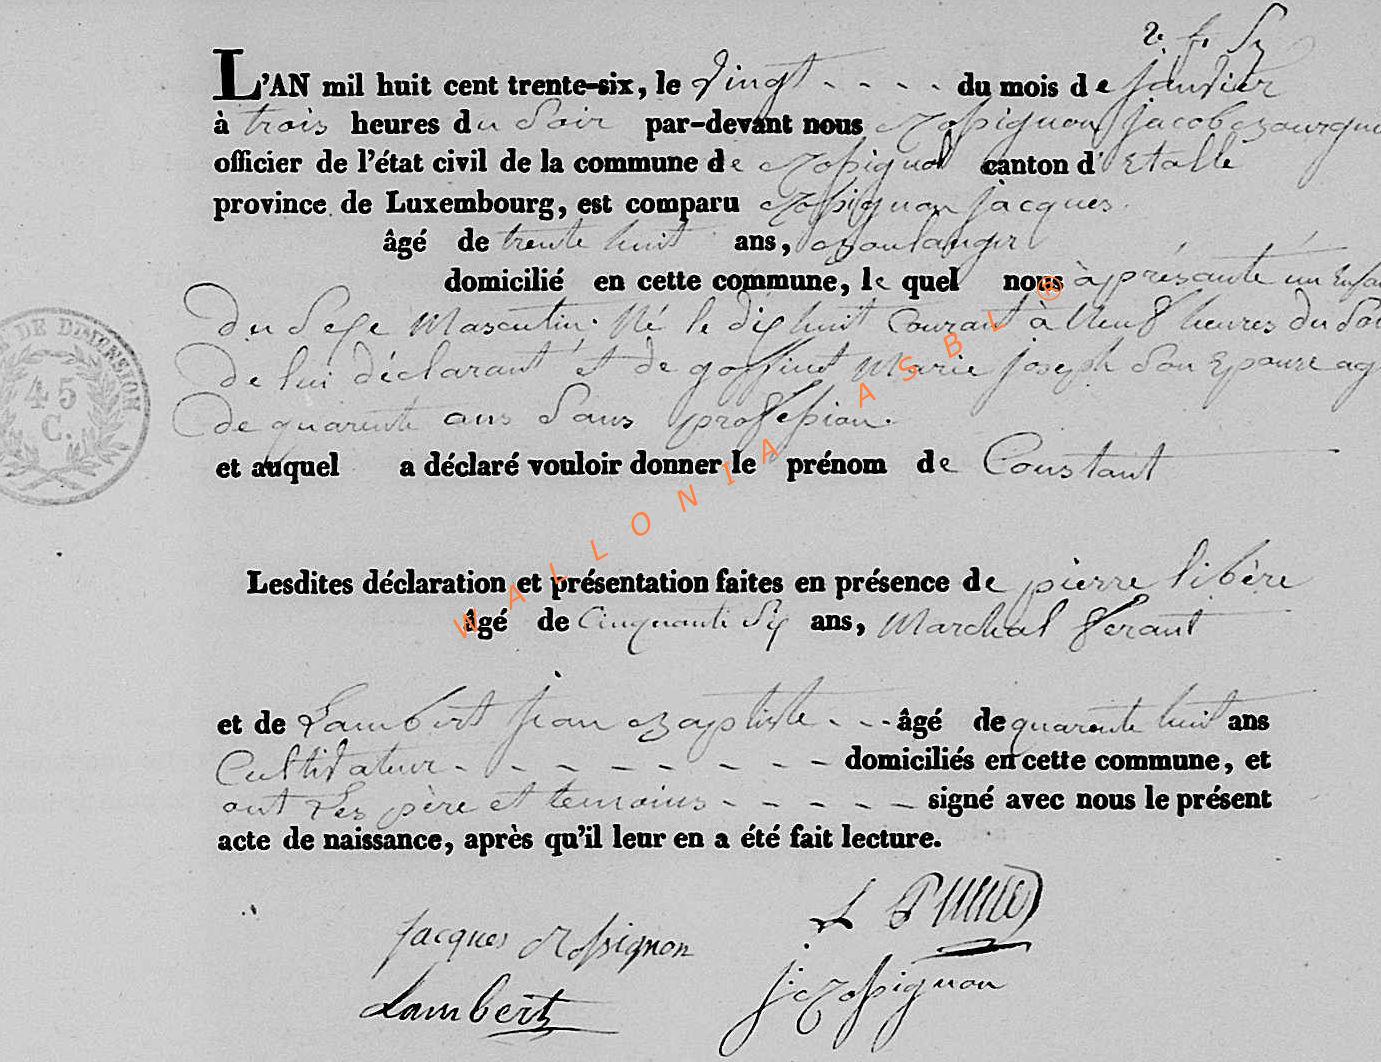 2. f. Sz
L'AN mil huit cent trente-six, le vingt - - - - du mois de janvier
à trois heures du Soir par-devant nous Rossignon Jacob Bourgu
officier de l'état civil de la commune de Rossignol canton d'Etalle
province de Luxembourg, est comparu Rossignon jacques.
âgé de trente huit ans, Boulanger
domicilié en cette commune, lequel nous à présanté un Enfa
Du Sexe Masculin. Né le dix huit Courant à Neuf heures du Soi
De lui déclarant et de goffinet Marie joseph Son Epouse ag
De quarente ans Sans proffession.
et auquel a déclaré vouloir donner le prénom de Constant
Lesdites déclaration et présentation faites en présence de pierre libère
âgé de Cinquante Six ans, Marchal ferant
et de Lambert jean Baptiste - - - âgé de quarente huit ans
Cultivateur - - - - - - - - - domiciliés en cette commune, et
ont Les père et temoins - - - - - signé avec nous le présent
acte de naissance, après qu'il leur en a été fait lecture.
L P
jacques Rossignon
j: Rossignon
Lambert
DE DIMENSION
45
C.
WALLONIA ASBL ®